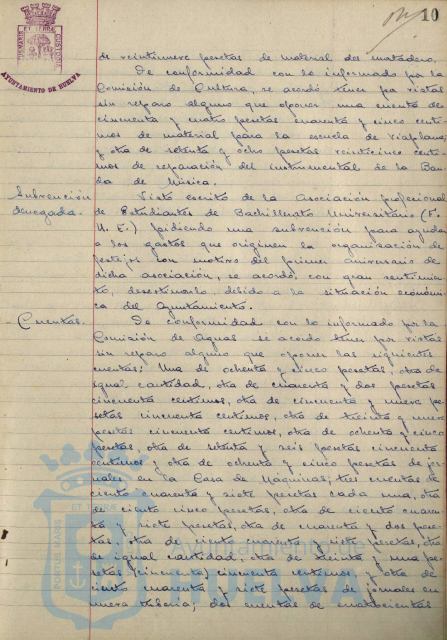 10
AYUNTAMIENTO DE HUELVA
de veintinueve pesetas de material del matadero.
De conformidad con lo informado por la
Comisión de Cultura, se acordó tener por vistas
sin reparo alguno que oponer una cuenta de
cincuenta y cuatro pesetas cuarenta y cinco cénti-
mos de material para la escuela de Viaplana,
y otra de setenta y ocho pesetas veinticinco cénti-
mos de reparación del instrumental de la Ban-
da de Música.
Subvención
denegada.
Visto escrito de la Asociación profesional
de Estudiantes de Bachillerato Universitario (F.
U. E.) pidiendo una subvención para ayudar
a los gastos que originen la organización de
festejos con motivo del primer aniversario de
dicha asociación, se acordó, con gran sentimien-
to, desestimarlo, debido a la situación económi-
ca del Ayuntamiento.
Cuentas.
De conformidad con lo informado por la
Comisión de Aguas se acordó tener por vistas
sin reparo alguno que oponer las siguientes
cuentas: Una de ochenta y cinco pesetas, otra de
igual cantidad, otra de cuarenta y dos pesetas
cincuenta céntimos, otra de cincuenta y nueve pe-
setas cincuenta céntimos, otra de treinta y nueve
pesetas cincuenta céntimos, otra de ochenta y cinco
pesetas, otra de setenta y seis pesetas cincuenta
céntimos y otra de ochenta y cinco pesetas de jor-
nales en la Casa de Máquinas; tres cuentas de
ciento cuarenta y siete pesetas cada una, otra
de ciento cinco pesetas, otra de ciento cuaren-
ta y siete pesetas, otra de cuarenta y dos pese-
tas, otra de ciento cuarenta y siete pesetas, otra
de igual cantidad, otra de treinta y una pe-
setas (cincuenta) cincuenta céntimos y otra de
ciento cuarenta y siete pesetas de jornales en
nueva tubería; dos cuentas de cuatrocientas